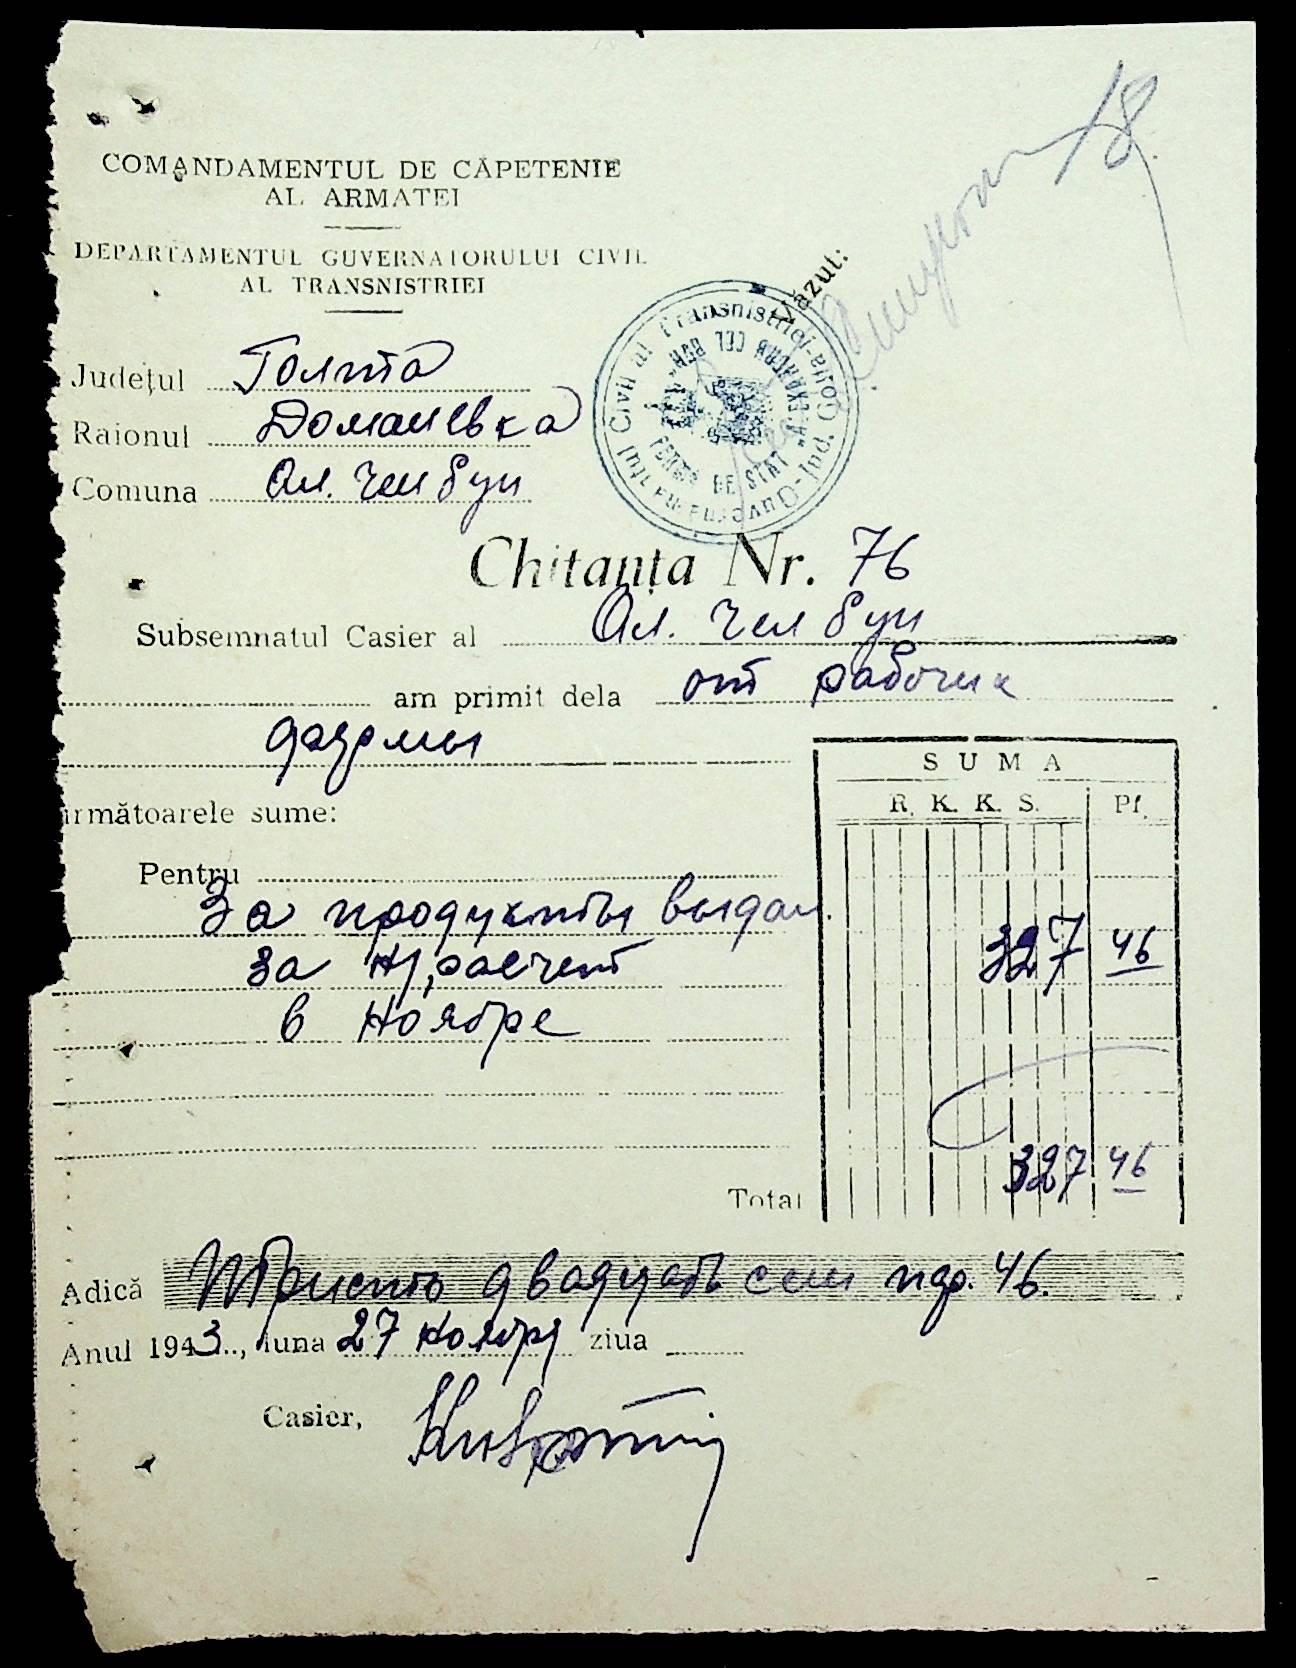 COMANDAMENTUL DE CĂPETENIE
AL ARMATEI
DEPARTAMENTUL GUVERNATORULUI CIVIL
AL TRANSNISTRIEI
Văzut:
Guvernamantul Civil al Transnistriei-Jud. Golta
FERMA DE STAT "ALEXANDRU CEL BUN"
Județul Голта
Raionul Доманевка
Comuna Ал. Чел Бун
Chitanța Nr. 76
Subsemnatul Casier al Ал. Чел Бун
am primit dela от рабочих
фермы
următoarele sume:
SUMA
R. K. K. S. Pf.
Pentru
За продукты выдан.
за н/расчет 327 46
в Ноябре
Total 327 46
Adică Триста двадцать сем пф. 46.
Anul 1943, luna 27 ноября ziua
Casier,